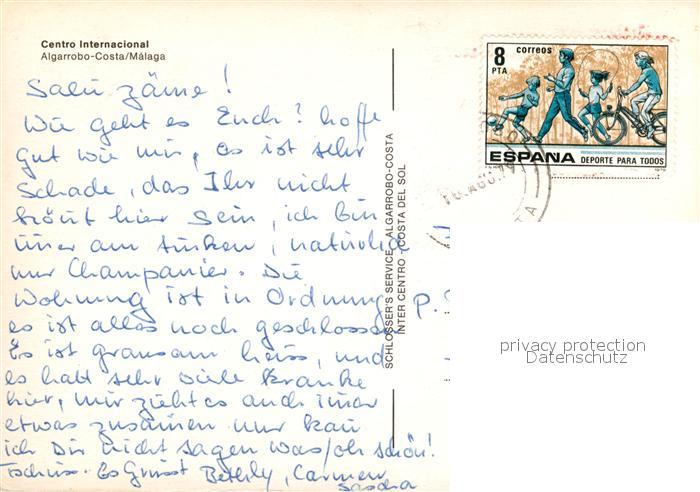 Centro Internacional
Algarrobo-Costa/Málaga
Salü zäme!
Wie geht es Euch? hoffe
gut wie mir, es ist sehr
Schade, das Ihr nicht
könnt hier sein, ich bin
imer am trinken, natürlich
nur Champanier. Die
Wohnung ist in Ordnung
es ist alles noch geschlossen
Es ist grausam heiss, und
es hatt sehr viele Kranke
hier, mir zieht es auch imer
etwas zusamen nur kan
ich Dir nicht sagen was/oh schön!
Tschüss. Es Grüsst Bethly, Carmen
Sascha
SCHLOSSER'S SERVICE, ALGARROBO-COSTA
INTER CENTRO - COSTA DEL SOL
P.
8
PTA
correos
ESPAÑA DEPORTE PARA TODOS
1979
AGO. 79
privacy protection
Datenschutz